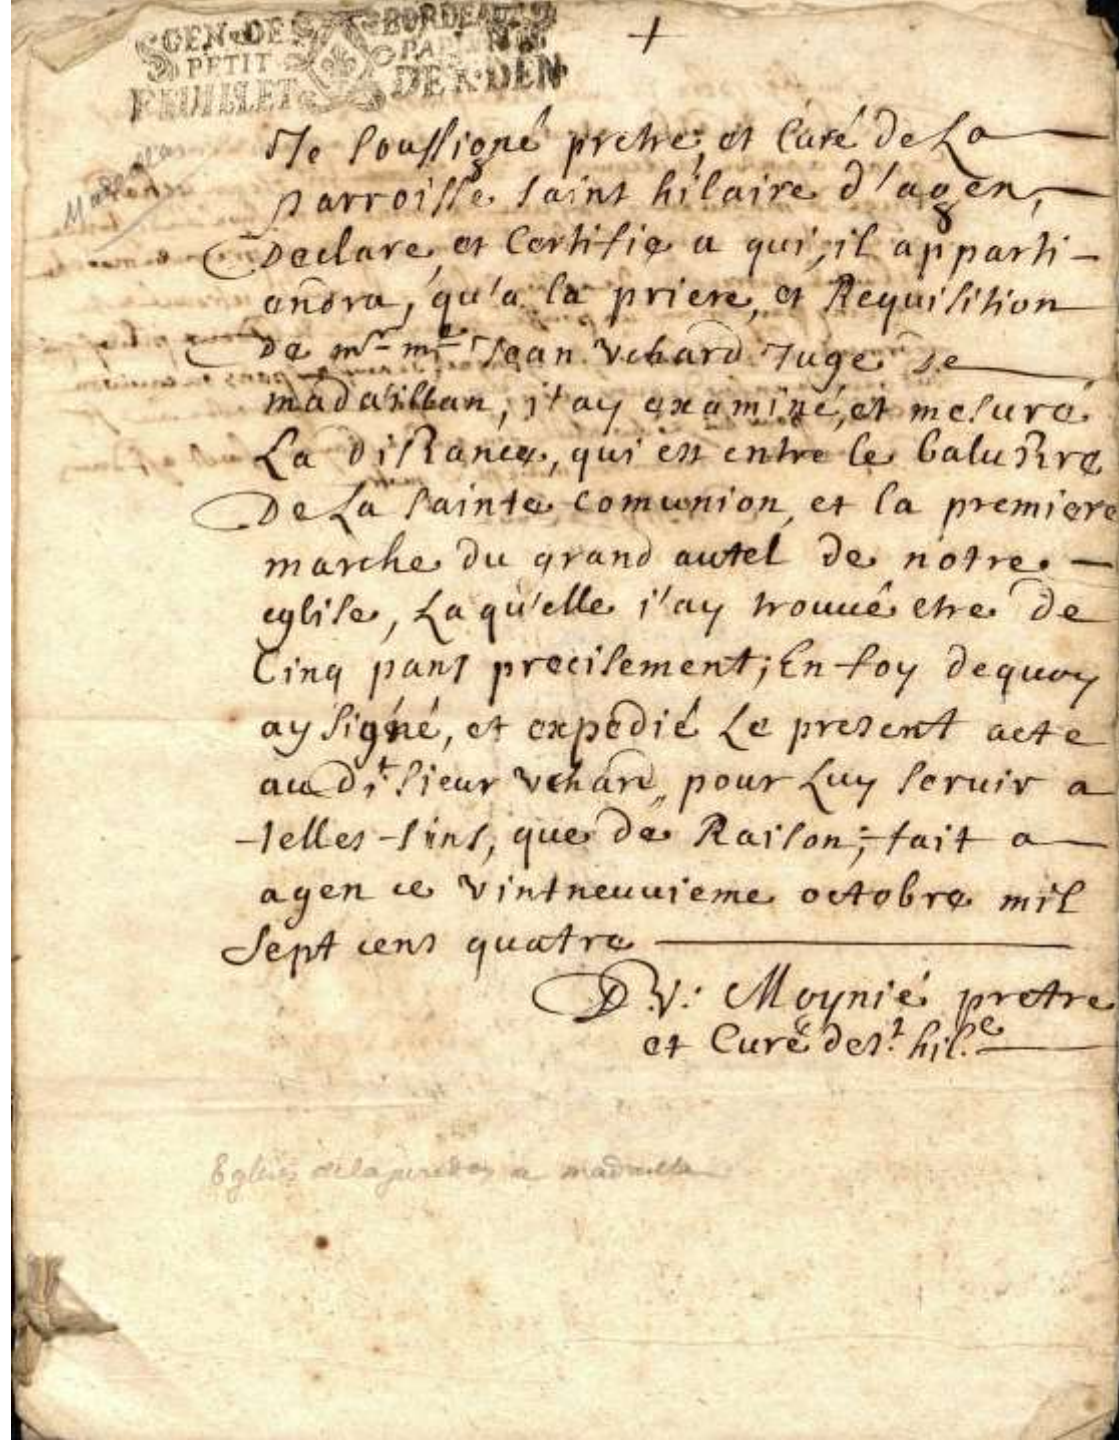 GEN. DE BORDEAUX
PETIT
FEUILLET DEN. DEN
+
Je soussigné pretre, et Curé de La
parroisse saint hilaire d'agen,
Declare, et Certifie a qui, il apparti-
andra, qu'a la priere, et Requisition
De mr. me. Jean Vchard Juge de
madaillan, j'ay examiné, et mesuré
La distance, qui est entre le balustre
De La sainte comunion, et la premiere
marche du grand autel de notre
eglise, Laqu'elle j'ay trouué etre de
Cinq pans precisement; En foy dequoy
ay signé, et expedié Le present acte
au dit. sieur Vchard, pour Luy seruir a
telles fins, que de Raison; fait a
agen ce vintneuuieme octobre mil
sept cens quatre
D. V. Moynié pretre
et Curé de st. hil.e
Eglises de la juridon a madaillan